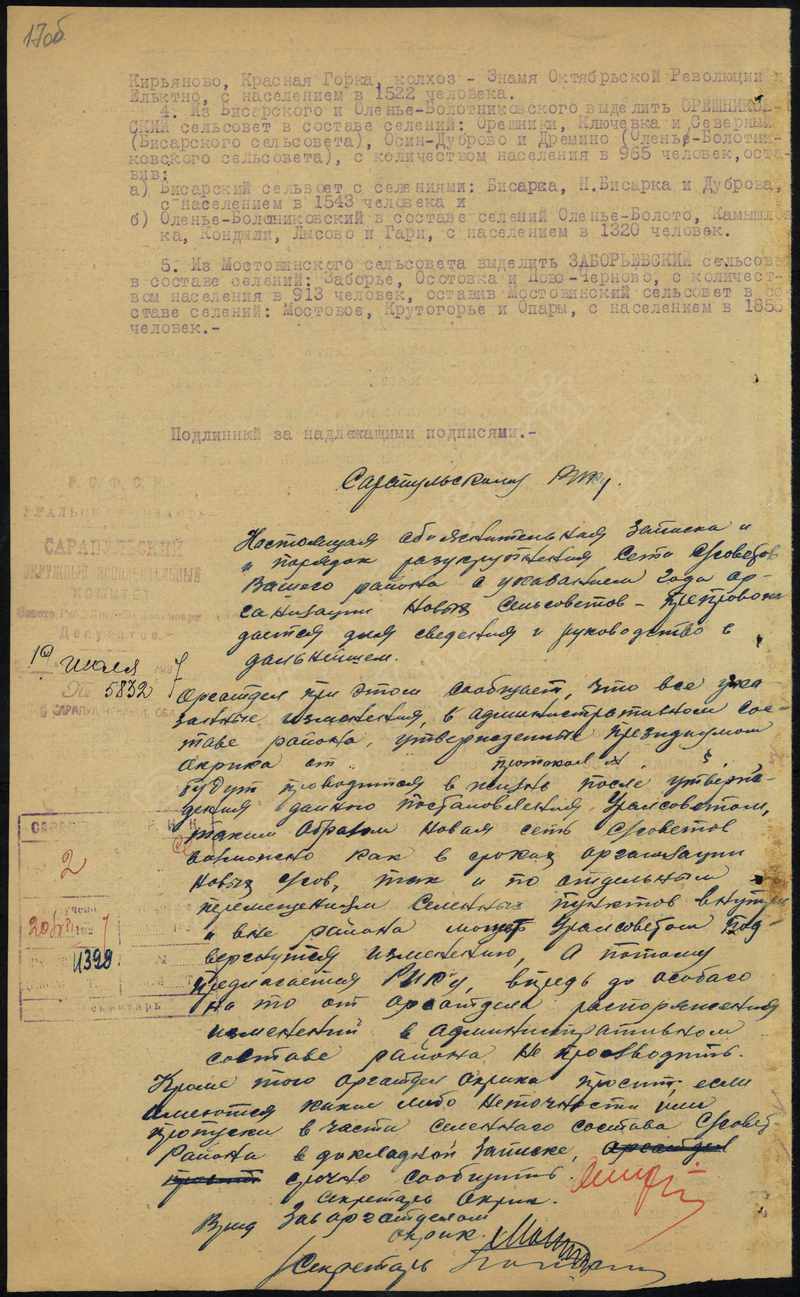 17об
Кирьяново, Красная Горка, колхоз - Знамя Октябрьской Революции и
Ельктно, с населением в 1522 человека.
4. Из Бисарского и Оленье-Болотниковского выделить ОРЕШНИКОВ-
СКИЙ сельсовет в составе селений: Орешники, Ключевка и Северный
(Бисарского сельсовета), Осин-Дуброво и Дремино (Оленье-Болотни-
ковского сельсовета), с количеством населения в 965 человек, оста-
вив:
а) Бисарский сельсовет с селениями: Бисарка, Н.Бисарка и Дуброва,
с населением в 1543 человека и
б) Оленье-Болотниковский в составе селений Оленье-Болото, Камышлов
ка, Кондыли, Лысово и Гари, с населением в 1320 человек.
5. Из Мостовинского сельсовета выделить ЗАБОРЬЕВСКИЙ сельсовет
в составе селений: Заборье, Осотовка и Ново-Черново, с количест-
вом населения в 913 человек, оставив Мостовинский сельсовет в со
ставе селений: Мостовое, Крутогорье и Опары, с населением в
человек.-
Подлинный за надлежащими подписями.-
Сарапульскому Рику.
Р.С.Ф.С.Р.
САРАПУЛЬСКИЙ
ОКРУЖНЫЙ ИСПОЛНИТЕЛЬНЫЙ
КОМИТЕТ
Депутатов.-
19 июля 7
№ 5832
Настоящая объяснительная записка и
и порядок разукрупнения сети С/советов
Вашего района с указанием года ор-
ганизации новых сельсоветов - препровож
дается для сведения и руководство в
дальнейшем.
Орготдел при этом сообщает, что все ука
занные изменения, в административном сос-
таве района, утвержденные президиумом
Окрика от протокол № §
будут проводится в жизнь после утверж-
дения данного постановления Уралсоветом,
таким образом новая сеть С/советов
как в сроках организации
новых с/сов, так и по отдельным
перемещениям селенных пунктов внутри
и вне района могут Уралсоветом под-
вергнутся изменению, а потому
предлагается РИК'у, впредь до особаго
на то от орготдела распоряжения
изменений в административном
составе района не производить.
Кроме того орготдел Окрика просит, если
имеются какие либо неточности или
пропуски в части селенного состава С/совет.
района в докладной записке, орготдел
просит срочно сообщить.
Секретарь Окрик.
Врид Зав орготделом
Окрик.
Секретарь
2
20/VII 192 7
11398